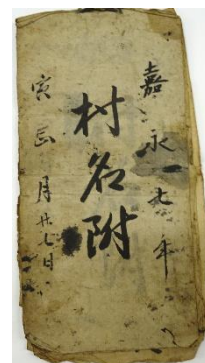 嘉永七年
村名附
寅正月廿七日